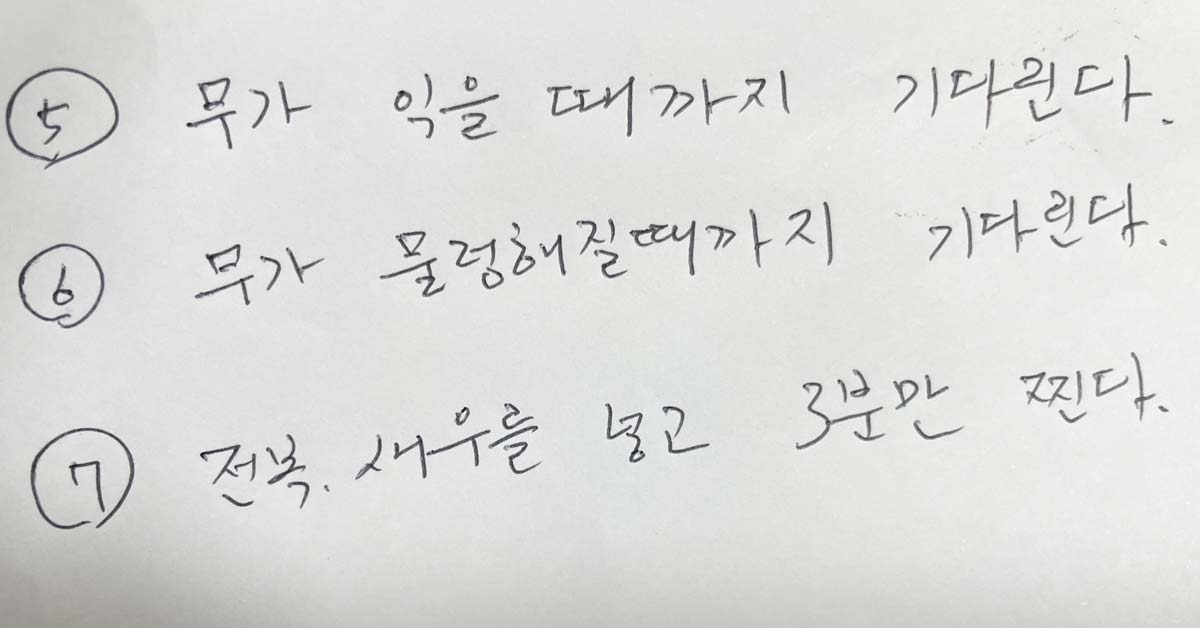 ⑤ 무가 익을 때까지 기다린다.
⑥ 무가 물렁해질때까지 기다린다.
⑦ 전복. 새우를 넣고 3분만 찐다.